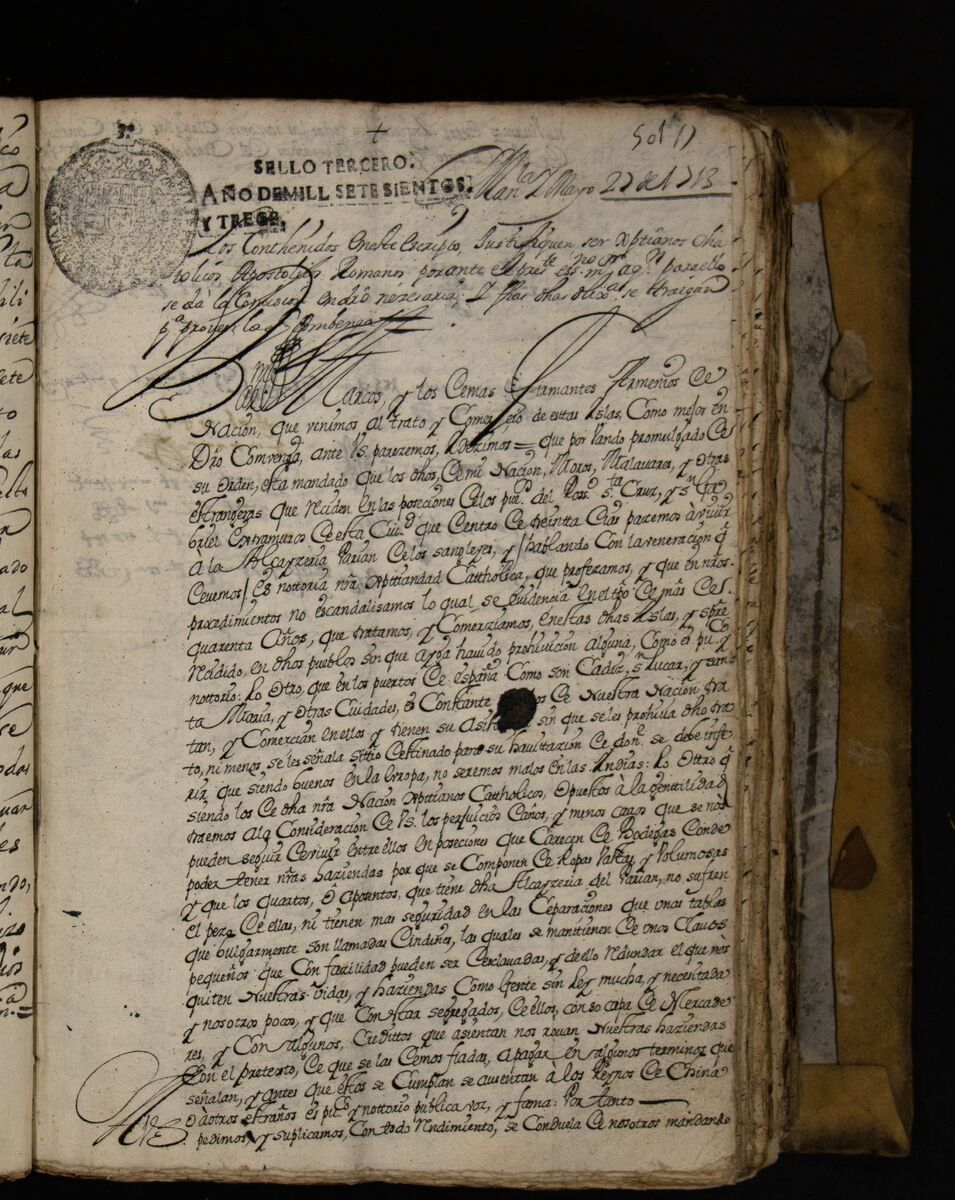 3º
501 17
SELLO TERCERO:
AÑO DE MILL SETE SIENTOS:
Y TRECE.
Manˡᵃ Y Mayo 27 de 1713
Los Conthenidos en este Escripto, Justifiquen ser xptianos cha
tolicos Apostolicos Romanos por ante el presᵗᵉ esⁿᵒ mʸᵒʳ para ello
se da la Comission en dro nezesaria; Y fhas dhas dilixᵃˢ se traigan
pᵃ proveer lo q Combenga
Marcos, y los Demas Estamantes Armenios de
Nación, que venimos al trato y Comerzio de estas Islas, Como mejor en
Dro Comvenga, ante Vs. parezemos, y dezimos = que por Vando promulgado de
su Orden, esta mandado que los dhos, de mi Nacion, Moros, Malavares, y otras
extrangeras que residen en las poseciones de los pueᵒˢ del Rosᵒ sᵗᵃ Cruz, y sⁿ Ga
briel Extramuros de esta Ciuᵈ que dentro de treintta dias pasemos à vivir
a la Alcayzeria Parian de los sangleyes, y / hablando Con la veneracion q
devemos / es nottoria nrã Xpttiandad Catthólica, que profesamos, y que en nros
prozedimientos no escandalisamos lo qual se evidencia en el tpõ de más de
quarenta Años, que tratamos, y Comerziamos, en estas dhas Islas, y siẽpre
Residido, en dhos pueblos sin que ayga havido prohivición alguna, Como es puᶜᵒ y
nottorio: Lo otro, que en los puertos de españa Como son Cadiz, sⁿ Lucar, y san
ta Maria, y otras Ciudades, es Constante de Nuestra Nación tra
tan, y Comercian en ellos y tienen su sin que se les prohiva dho tra
to, ni menos se les señala sitio destinado para su havitazion de donᵉ se debe infe
rir que siendo buenos en la Eropa, no seremos malos en las Indias: Lo ottro q
siendo los de dha nrã Nación Xpttianos Catthólicos, Opuestos à la genttilidad
traemos a la Consideración de Vs. los perjuicios Daños, y menos cavos que se nos
pueden seguir de vivir entre ellos en poseciones que Carecen de Bodegas donde
poder tener nrãs haziendas por que se Componen de Ropas Vastas, y Volumosas
y que los quartos, ò aposentos, que tiene dha Alcayzeria del Parian, no sufren
el pezo de ellas, ni tienen mas seguridad en las Separaciones que unas tablas
que bulgarmente son llamadas Dindines, las quales se mantienen de unos Clavos
pequeños que Con fazilidad pueden ser Desclavadas, y de ello redundar el que nòs
quiten Nuestras vidas, y haziendas Como gente sin ley mucha, y necesitada
y nosotros pocos, y que Con estar segregados, de ellos, con so capa de Mercade
res, y Con algunos, Credittos que asientan nos rovan Nuestras haziendas
con el pretexto, de que se las demos fiadas, a pagar en algunos terminos que
señalan, y antes que estos se Cumplan se ausentan à los Reynos de China
ò à otros estraños es puᶜᵒ y nottorio publica voz, y fama: Por tanto
pedimos y suplicamos, Con todo Rendimiento, se Conduela de nosotros mandando